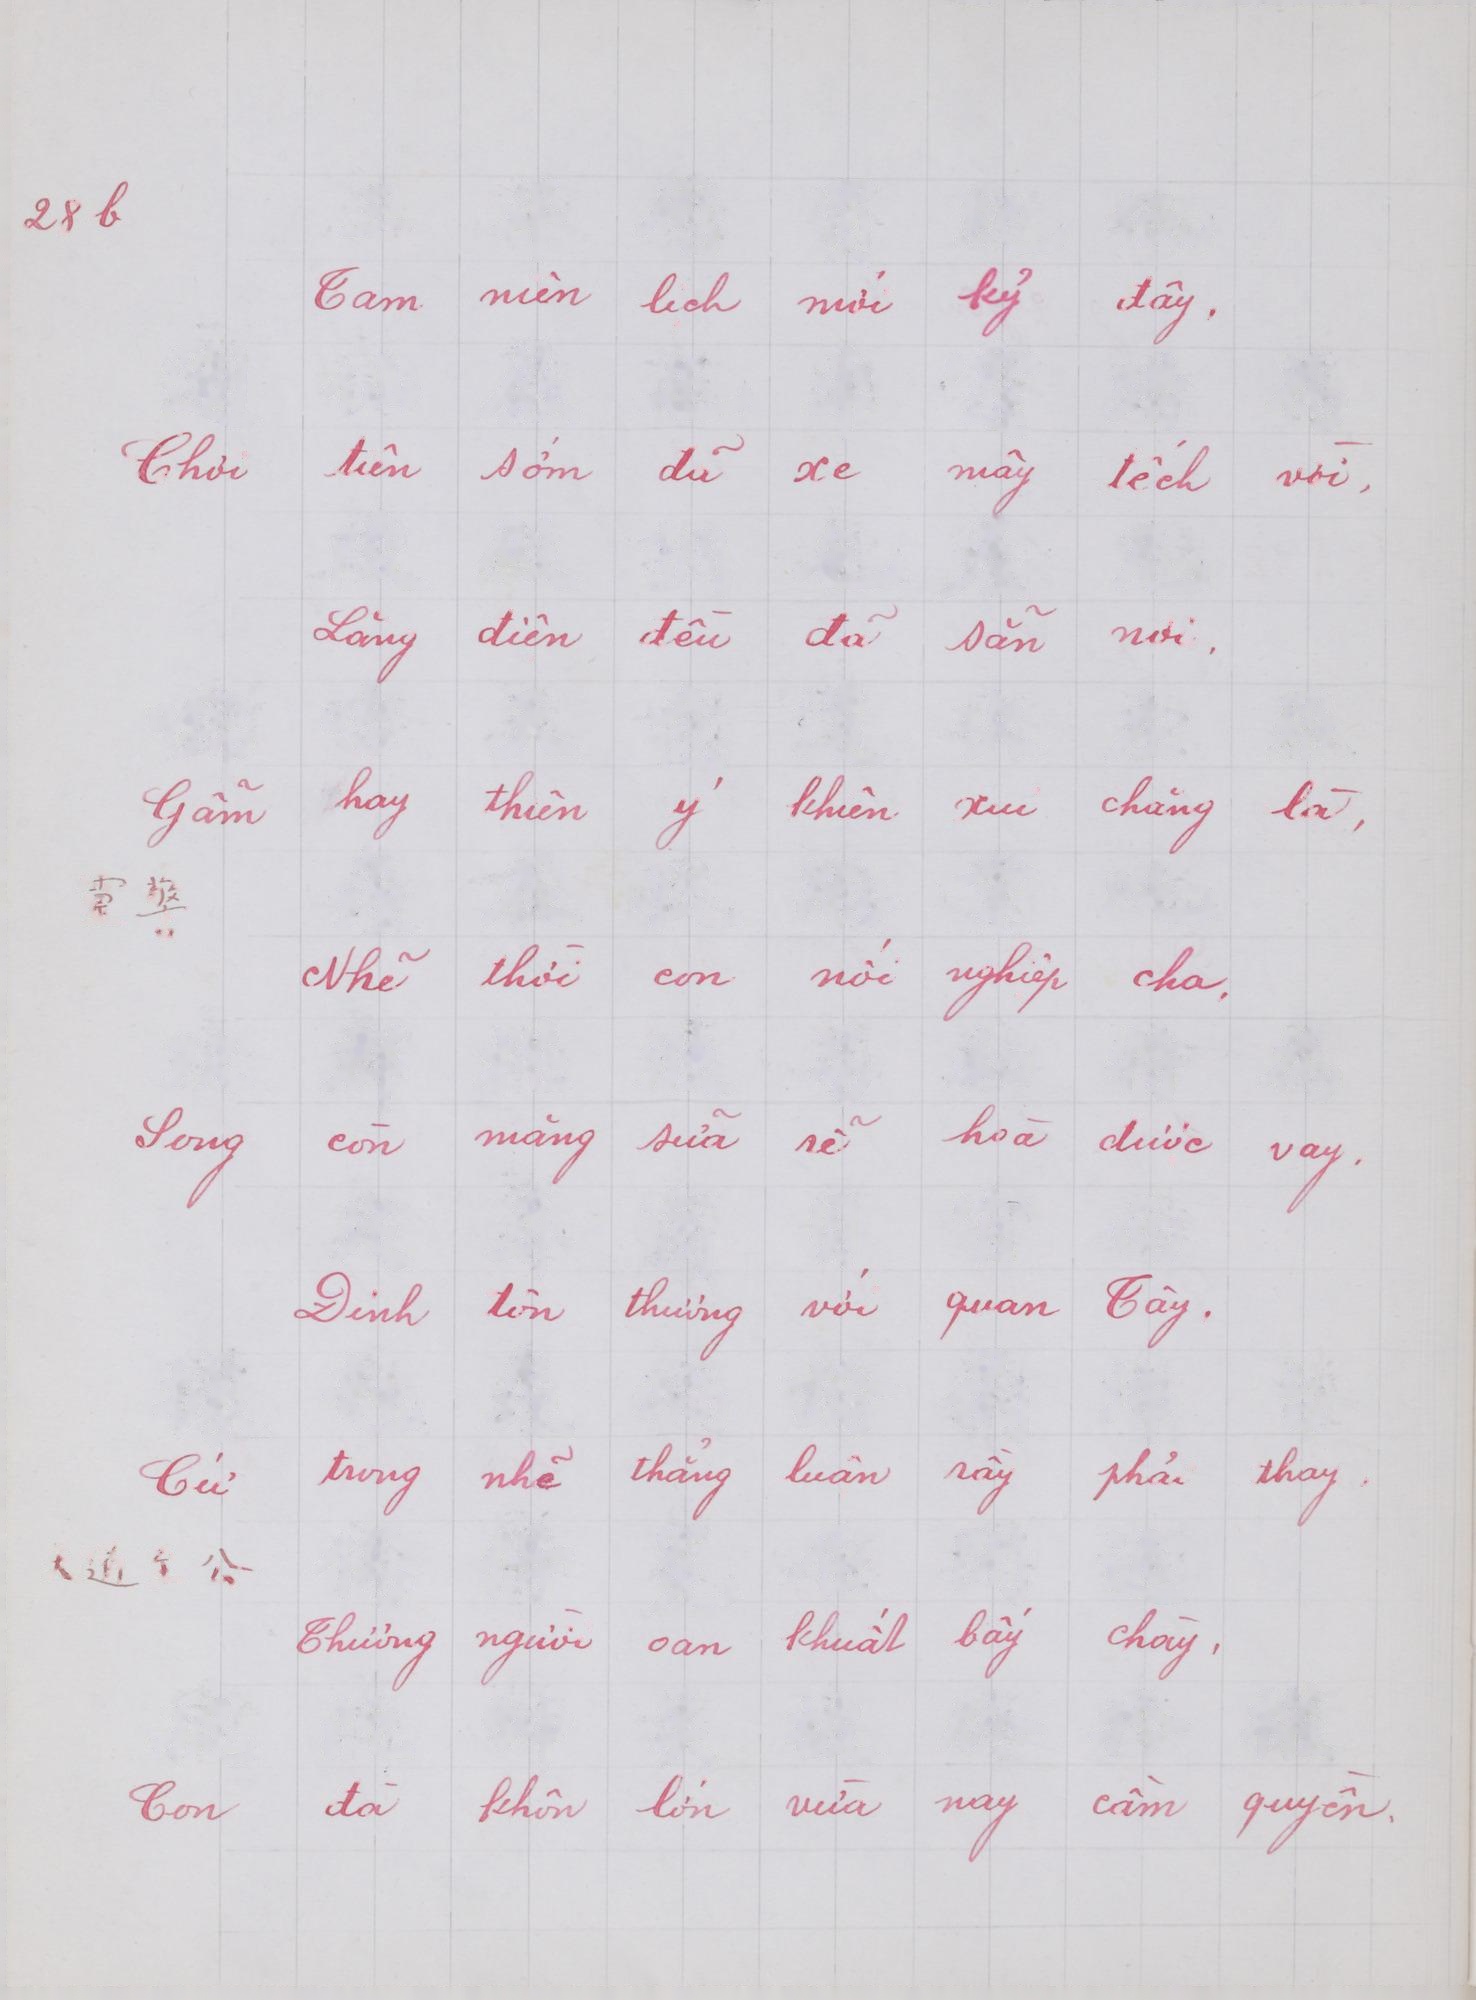 28 b
Tam niên lịch mới kỷ đây.
Chơi tiên sớm đã xe mây tếch vời,
Lăng điện đều đã sẵn nơi.
Gẫm hay thiên ý khiến xui chăng là,
Nhẽ thời con nối nghiệp cha.
Song còn măng sữa rẽ hoà được vay.
Đình tôn thương với quan Tây.
Cứ trong nhẽ thẳng luận rày phải thay.
公 道
Thương người oan khuất bấy chày,
Con đà khôn lớn vừa nay cầm quyền.